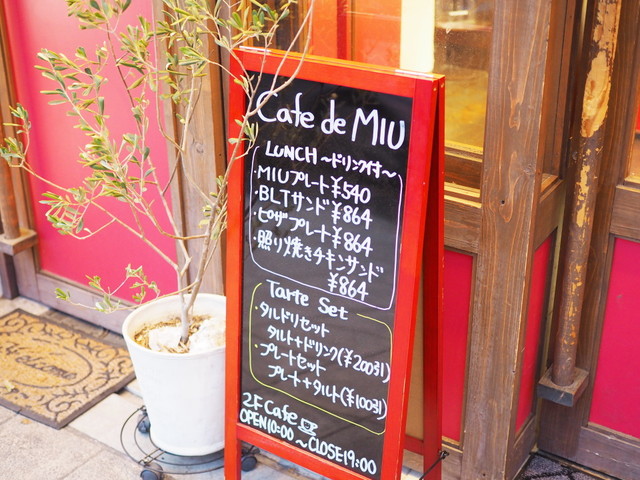 Cafe de MIU
LUNCH ~ドリンク付~
・MIUプレート ¥540
・BLTサンド ¥864
・ピザプレート ¥864
・照り焼きチキンサンド
¥864
Tarte Set
・タルドリセット
タルト+ドリンク(¥200引)
・プレートセット
プレート+タルト(¥100引)
2F Cafe
OPEN10:00～CLOSE19:00
Welcome